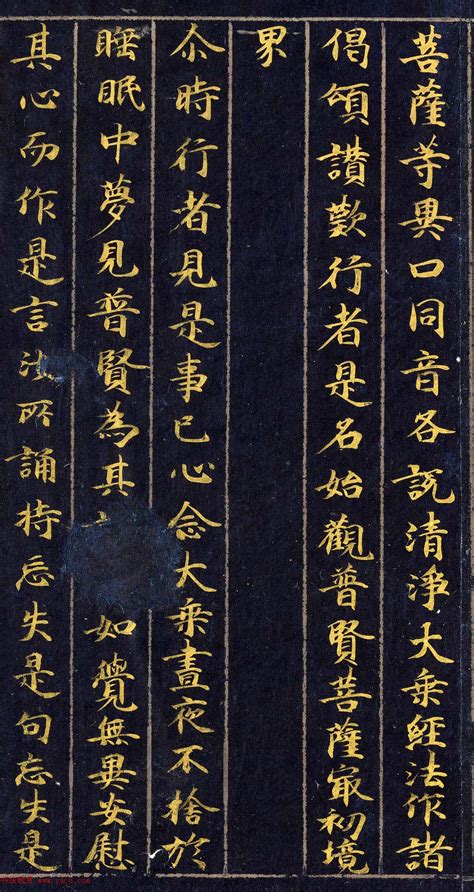 菩薩等異口同音各説清淨大乗經法作諸
偈頌讃歎行者是名始觀普賢菩薩冣初境
界
尒時行者見是事已心念大乗晝夜不捨於
睡眠中夢見普賢為其 如覺無異安慰
其心而作是言汝所誦持忘失是句忘失是